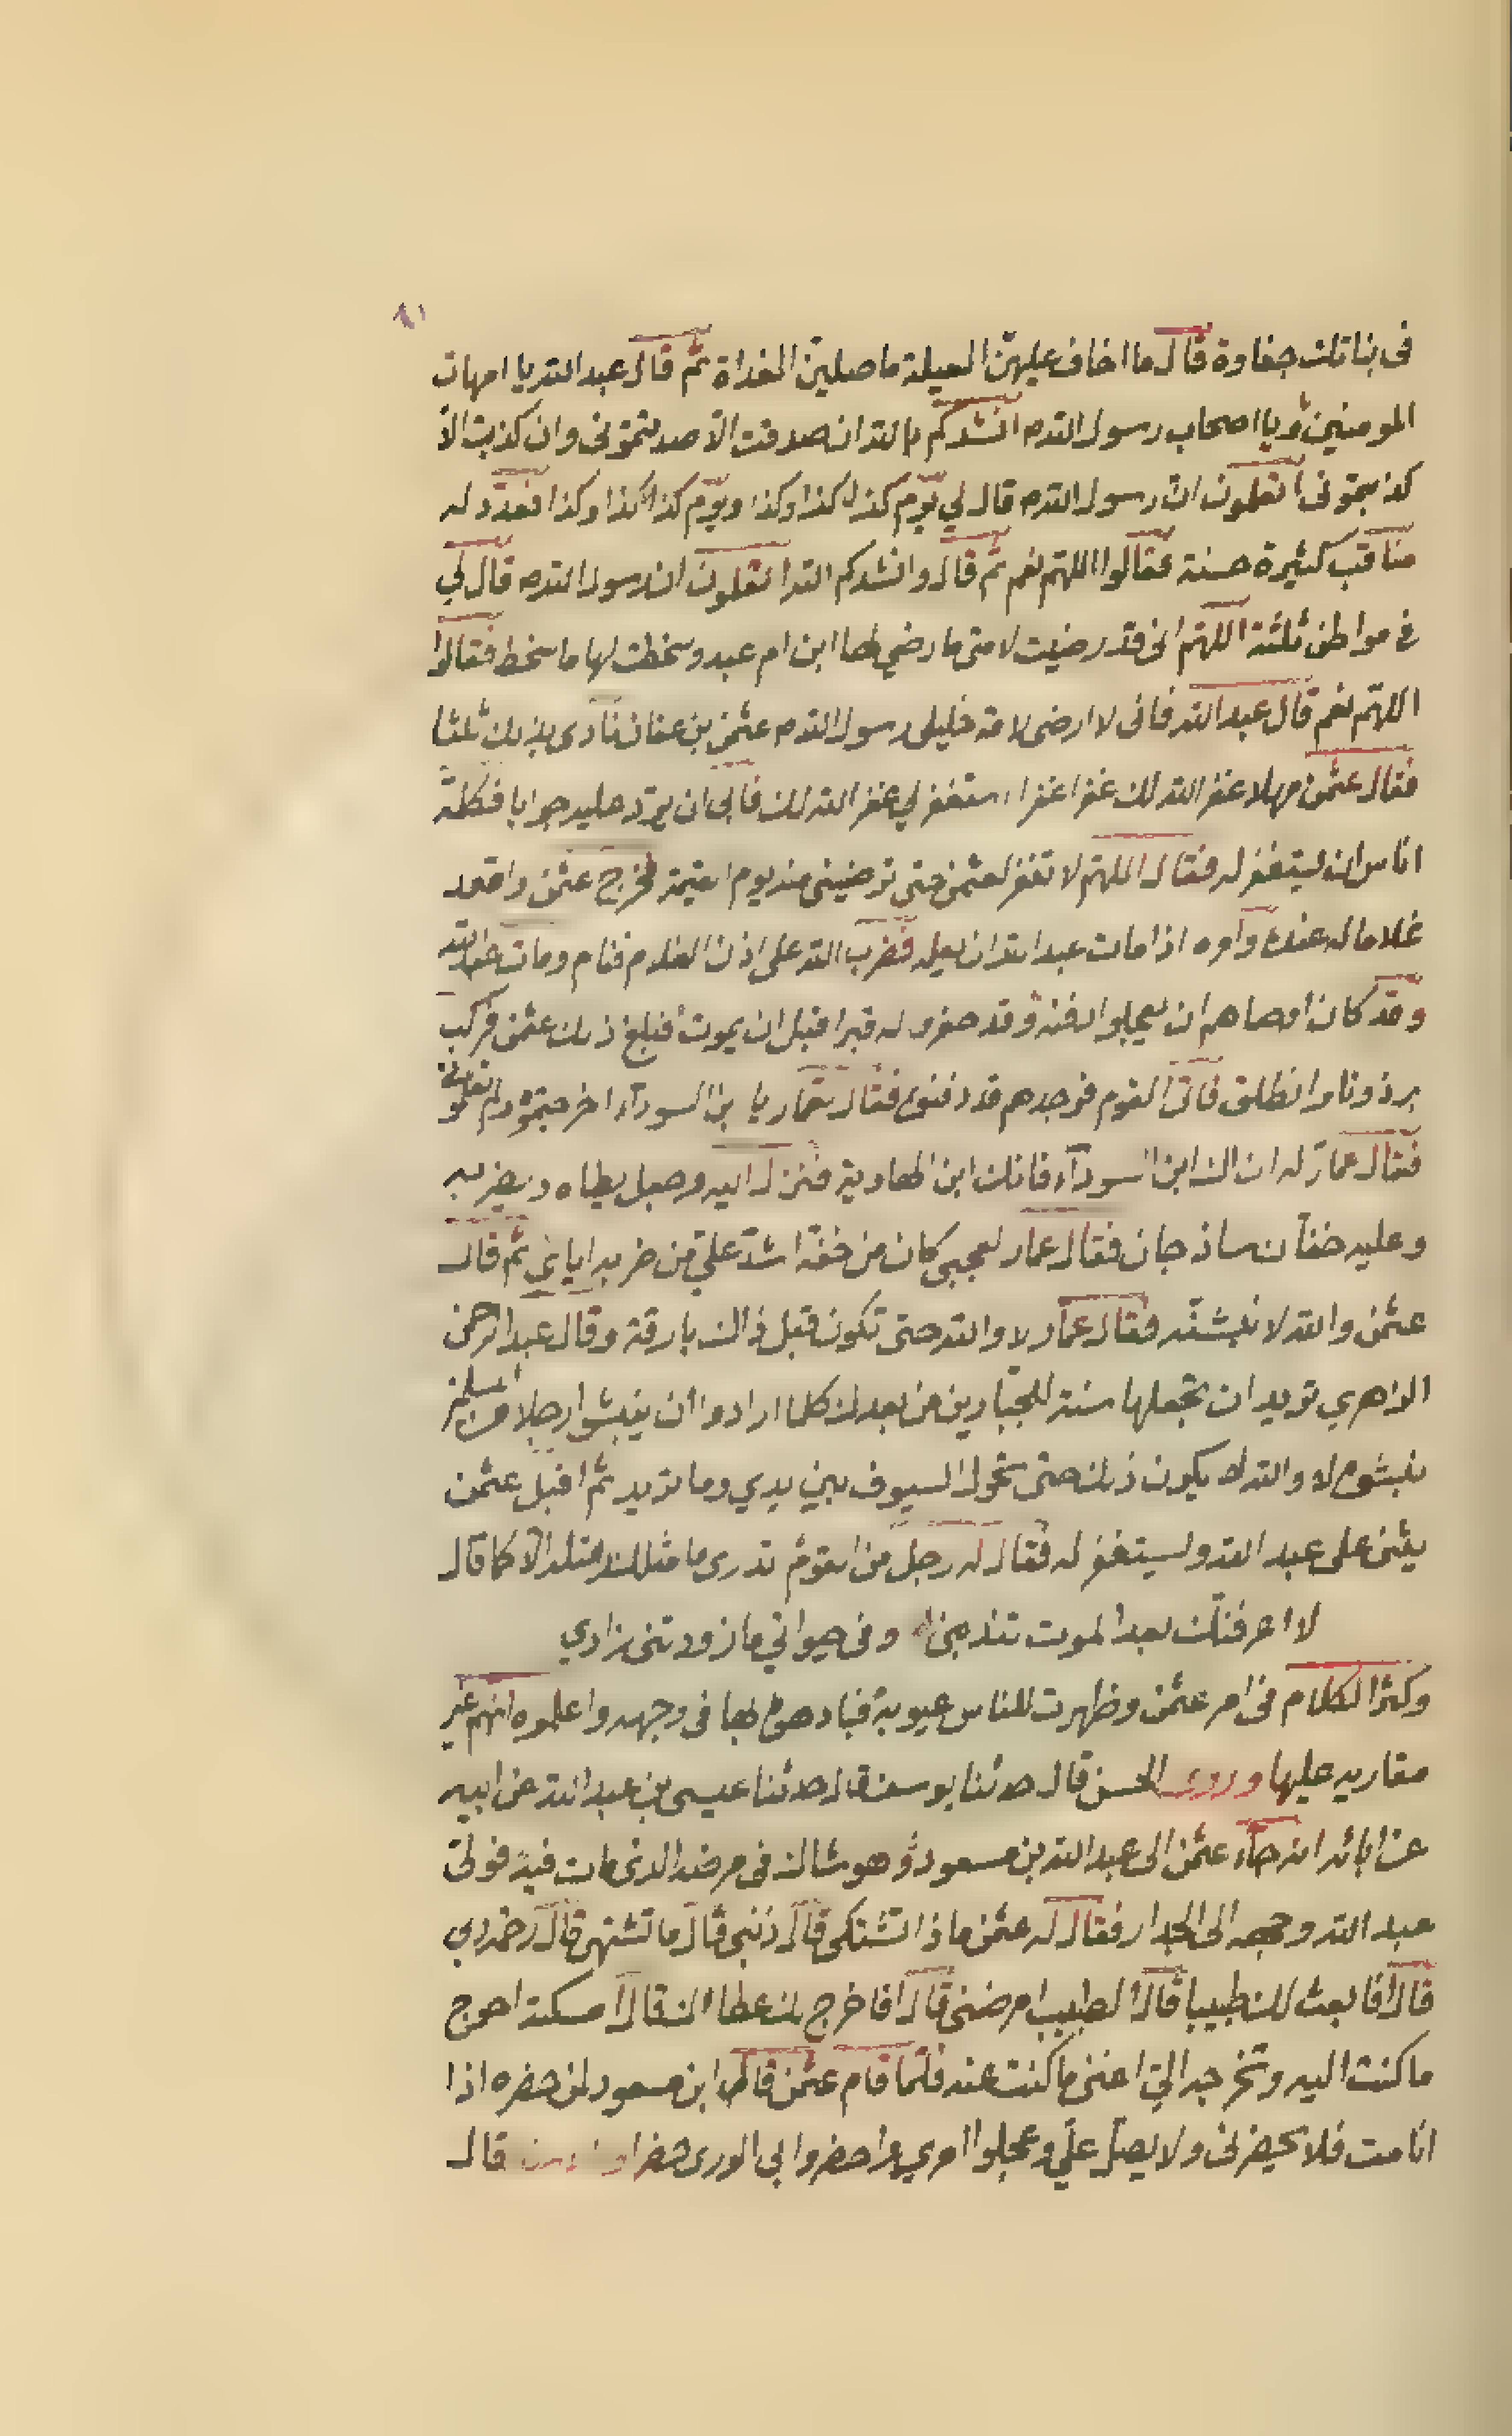 ٦١
في بناتك جفاوة قال ما اخاف عليهن العيلة ما صلين الغداة ثم قال عبد الله يا امهات
المومنين ويا اصحاب رسول الله انشدكم بالله ان صدقت الا صدقتموني وان كذبت الا
كذبتموني اتعلمون ان رسول الله قال لي يوم كذا كذا وكذا ويوم كذا كذا وكذا فعدد له
مناقب كثيرة حسنة فقالوا اللهم نعم ثم قال وانشدكم الله اتعلمون ان رسول الله قال لي
في مواطن ثلثة اللهم اني قد رضيت لامتي ما رضي لها ابن ام عبد وسخطت لها ما سخط فقالوا
اللهم نعم قال عبد الله فاني لا ارضى لامة خليلي رسول الله عثمن بن عفان نادى بذلك ثلثا
فقال عثمن مهلا غفر الله لك غفرا غفرا استغفر لي غفر الله لك فابى ان يرد عليه جوابا فكلمه
اناس ان يستغفر له فقال اللهم لا تغفر لعثمن حتى ترضيني منه يوم القيمة فخرج عثمن واقعد
غلاما له عنده وامره اذا مات عبد الله ان يعلمه فضرب الله على اذن الغلام فنام ومات عبد الله
وقد كان اوصاهم ان يعجلوا دفنه وقد حفروا له قبرا قبل ان يموت فبلغ ذلك عثمن فركب
برذونا وانطلق فاتى القوم فوجدهم قد دفنوه فقال لعمار يا بن السوداء اخرجتموه ولم
فقال عمار له ان اك ابن السوداء فانك ابن فنزل اليه وجعل يطاه ويضربه
وعليه خفان ساذجان فقال عمار لعجبي كان من خفه اشد علي من ضربه اياي ثم قال
عثمن والله لانبشنه فقال عمار لا والله حتى تكون قبل ذالك بارقة وقال عبد الرحمن
الزهري تريد ان تجعلها سنة للجبارين من بعدك كلما ارادوا ان ينبشوا رجلا من المسلمين
نبشوه لا والله لا يكون ذلك حتى تحول السيوف بين يدي وما تريد ثم اقبل عثمن
يثني على عبد الله ويستغفر له فقال له رجل من القوم تدرى ما مثلك ومثله الا كما قال
لا اعرفنك بعد الموت تندبني وفي حيواتي ما زودتني زادي
وكثر الكلام في امر عثمن وظهرت للناس عيوبه فبادهوه بها في وجهه واعلموه انهم غير
مقاريه عليها وروى الحسن قال حدثنا يوسف قال حدثنا عيسى بن عبد الله عن ابيه
عن ابائه انه جاء عثمن الى عبد الله بن مسعود وهو شاك في مرضه الذي مات فيه فولى
عبد الله وجهه الى الجدار فقال له عثمن ماذا تشتكي قال ذنبي قال ما تشتهي قال رحمة ربي
قال افابعث لك طبيبا قال الطبيب امرضني قال افاخرج لك عطاءك قال امسكته احوج
ما كنت اليه وتخرجه الي اغنى ما كنت عنه فلما قام عثمن قال ابن مسعود لمن حضره اذا
انا مت فلا يحضرني ولا يصل علي وعجلوا امري واحضروا بي الورى قال